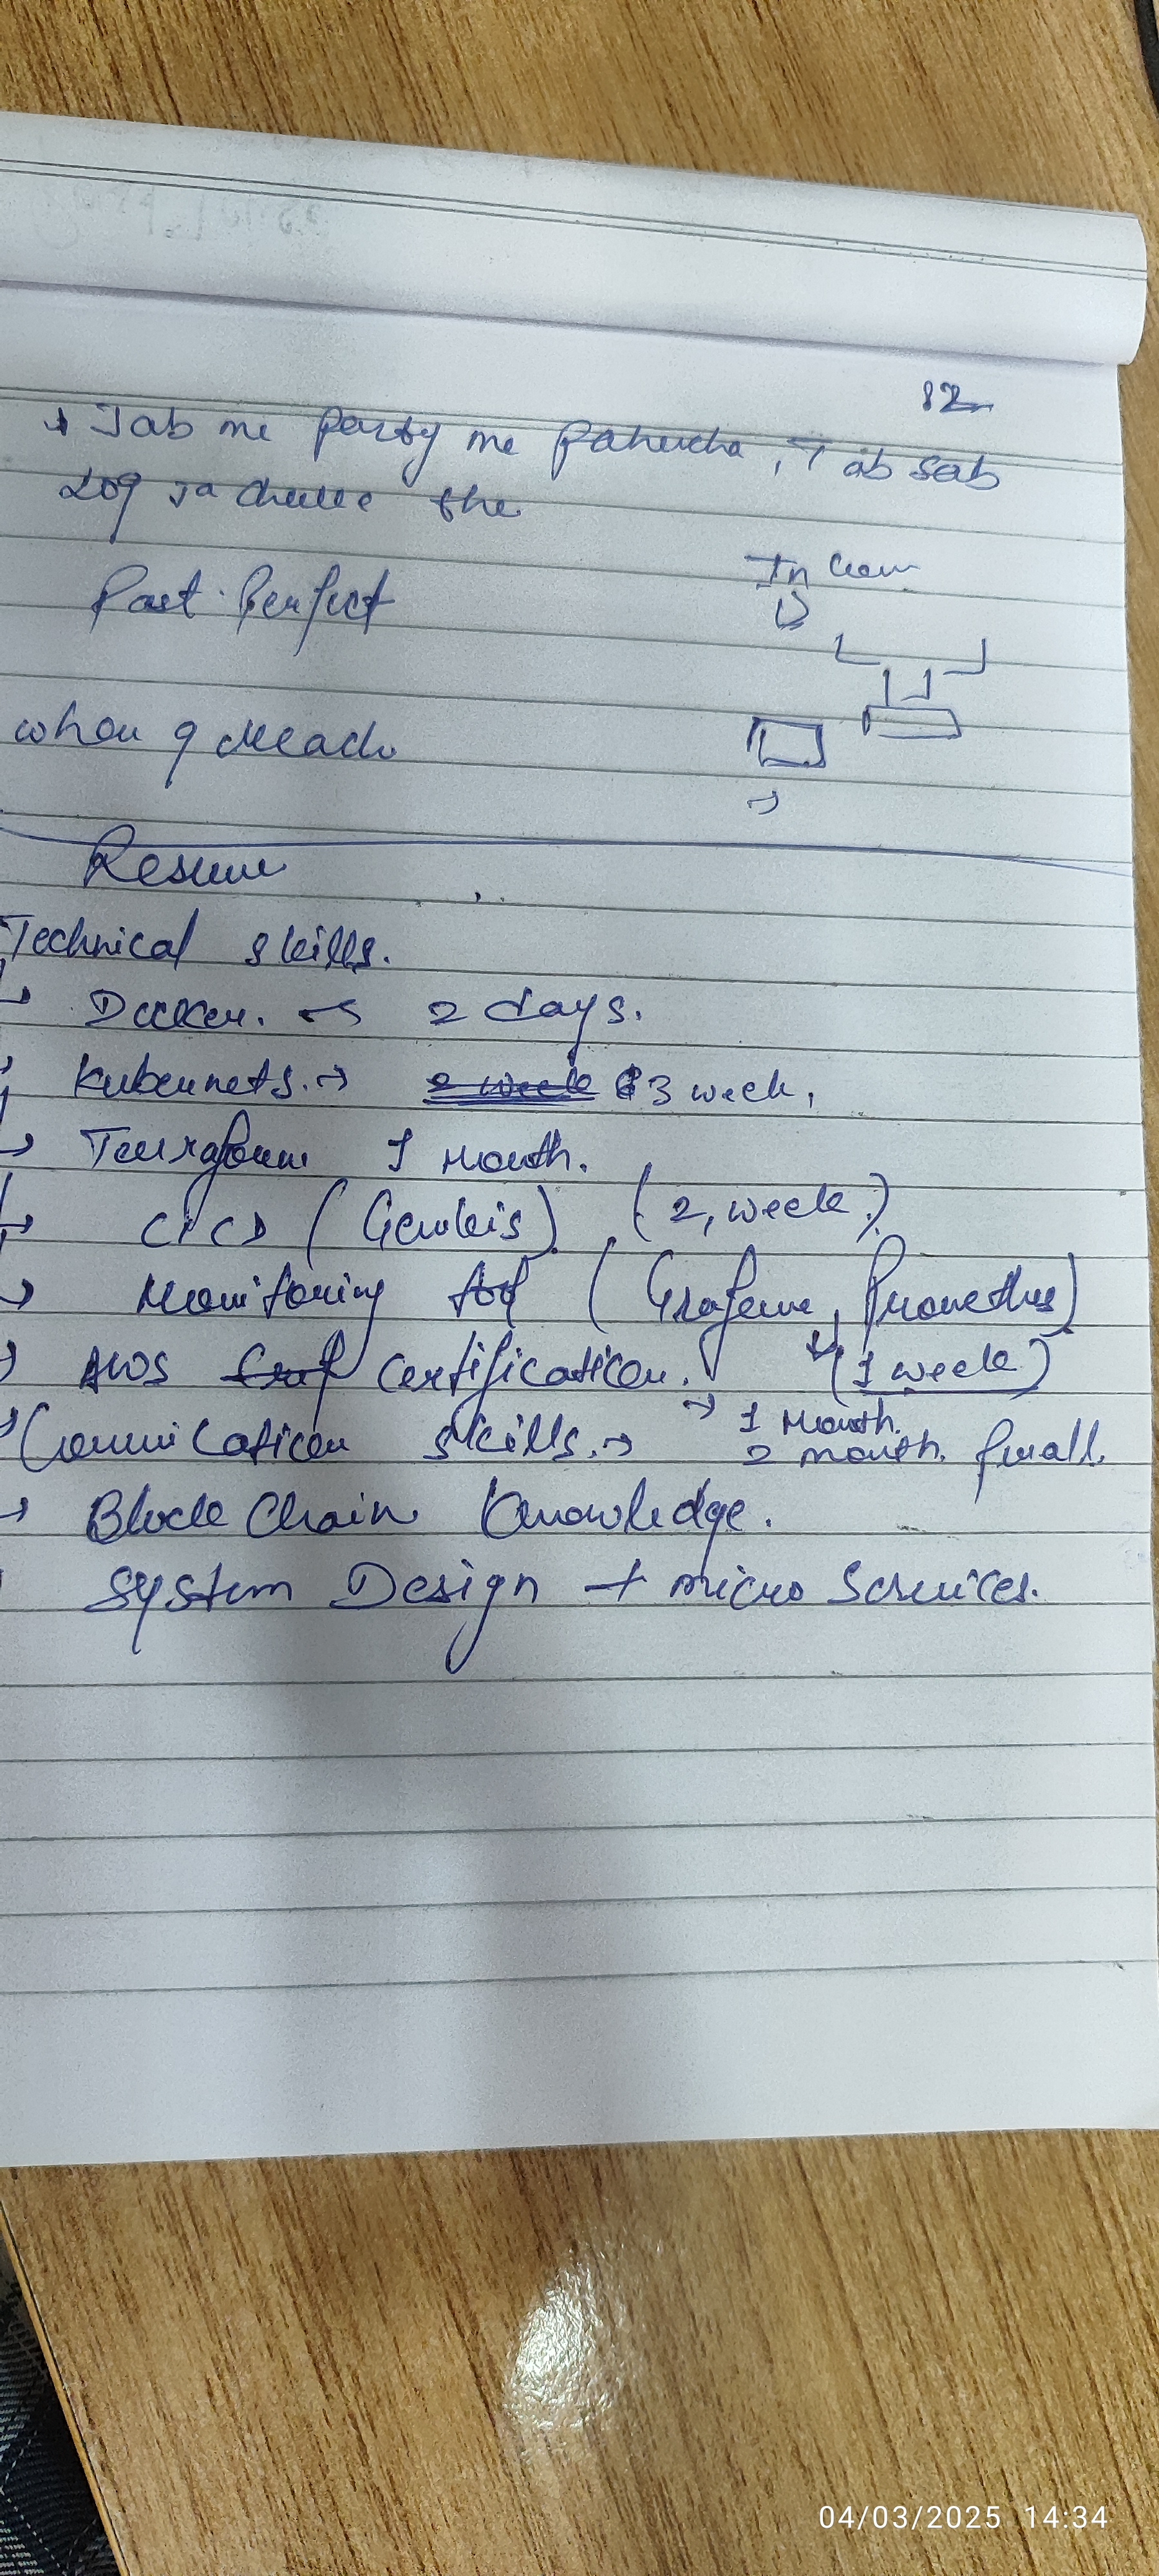 12
Jab me party me pahucha, Tab sab
log ja chuke the
Past Perfect
In
when I Reach
Resume
Technical skills.
→ Docker. → 2 days.
Kubernets. → 2 week 3 week,
→ Terraform 1 month.
→ CICD (Genkis) (2, week.)
→ Monitoring tool (Grafana, Promethus)
(1 week)
→ AWS Certification. → 1 Month.
→ Comunication skills. → 2 month. finall.
→ Block Chain Knowledge.
System Design + micro Services.
04/03/2025 14:34